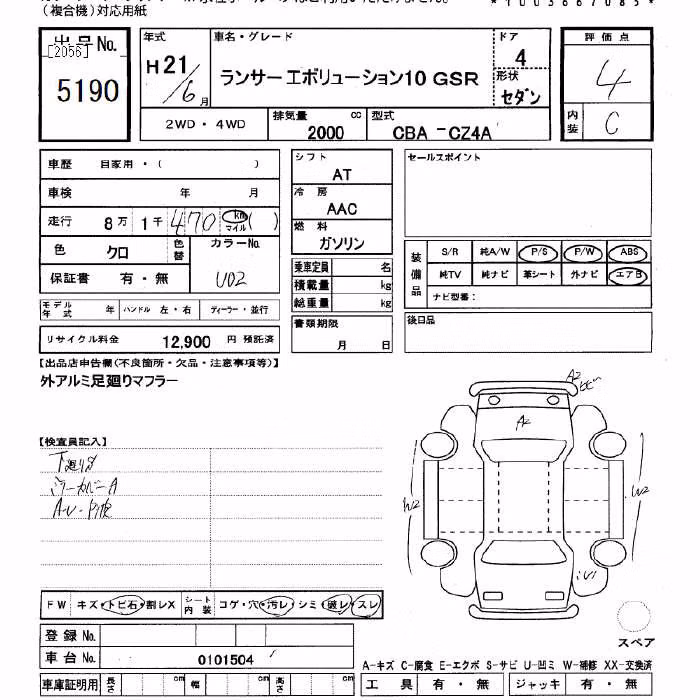 （複合機）対応用紙
*1003667085*
出品No.
[2056]
5190
年式
H21/6月
車名・グレード
ランサーエボリューション10 GSR
ドア
4
形状
セダン
評価点
4
内装
C
2WD・4WD
排気量 cc
2000
型式
CBA-CZ4A
車歴 自家用・（ ）
車検 年 月
走行 8万 1千 470 km マイル ( )
色 クロ 色替
カラーNo.
U02
保証書 有・無
モデル年式 年 ハンドル 左・右 ディーラー・並行
リサイクル料金 12,900 円 預託済
シフト
AT
冷房
AAC
燃料
ガソリン
乗車定員 名
積載量 kg
総重量 kg
書類期限
月 日
セールスポイント
装備品
S/R 純A/W P/S P/W ABS
純TV 純ナビ 革シート 外ナビ エアB
ナビ型番：
後日品
【出品店申告欄（不良箇所・欠品・注意事項等）】
外アルミ足廻りマフラー
【検査員記入】
下廻りS
ミラーカバーA
A2
A2
W2
W2
U1
FW キズ・トビ石・割レX シート内装 コゲ・穴・汚レ・シミ・破レ・スレ
登録No.
車台No. 0101504
車庫証明用 長さ cm 幅 cm 高さ cm
スペア
A-キズ C-腐食 E-エクボ S-サビ U-凹ミ W-補修 XX-交換済
工具 有・無 ジャッキ 有・無